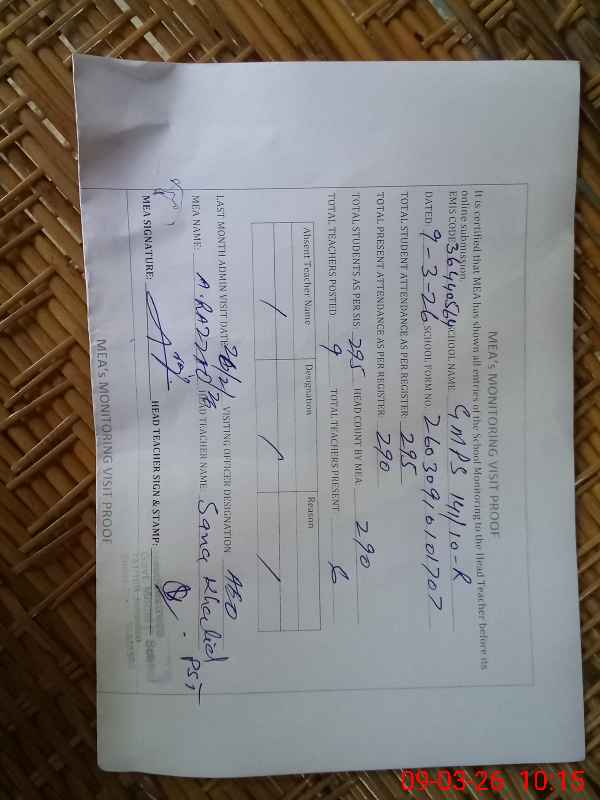 MEA's MONITORING VISIT PROOF
It is certified that MEA has shown all entries of the School Monitoring to the Head Teacher before its
online submission.
EMIS CODE: 36440564 SCHOOL NAME: GMPS 141/10-R
DATED: 9-3-26 SCHOOL FORM NO. 26030910101707
TOTAL STUDENT ATTENDANCE AS PER REGISTER: 295
TOTAL PRESENT ATTENDANCE AS PER REGISTER: 290
TOTAL STUDENTS AS PER SIS: 295 HEAD COUNT BY MEA: 290
TOTAL TEACHERS POSTED: 9 TOTAL TEACHERS PRESENT:
Absent Teacher Name Designation Reason
/ / /
LAST MONTH ADMIN VISIT DATE: VISITING OFFICER DESIGNATION AEO
MEA NAME: HEAD TEACHER NAME: Sana Khalid
MEA SIGNATURE: HEAD TEACHER SIGN & STAMP: PST
MEA's MONITORING VISIT PROOF
09-03-26 10:15